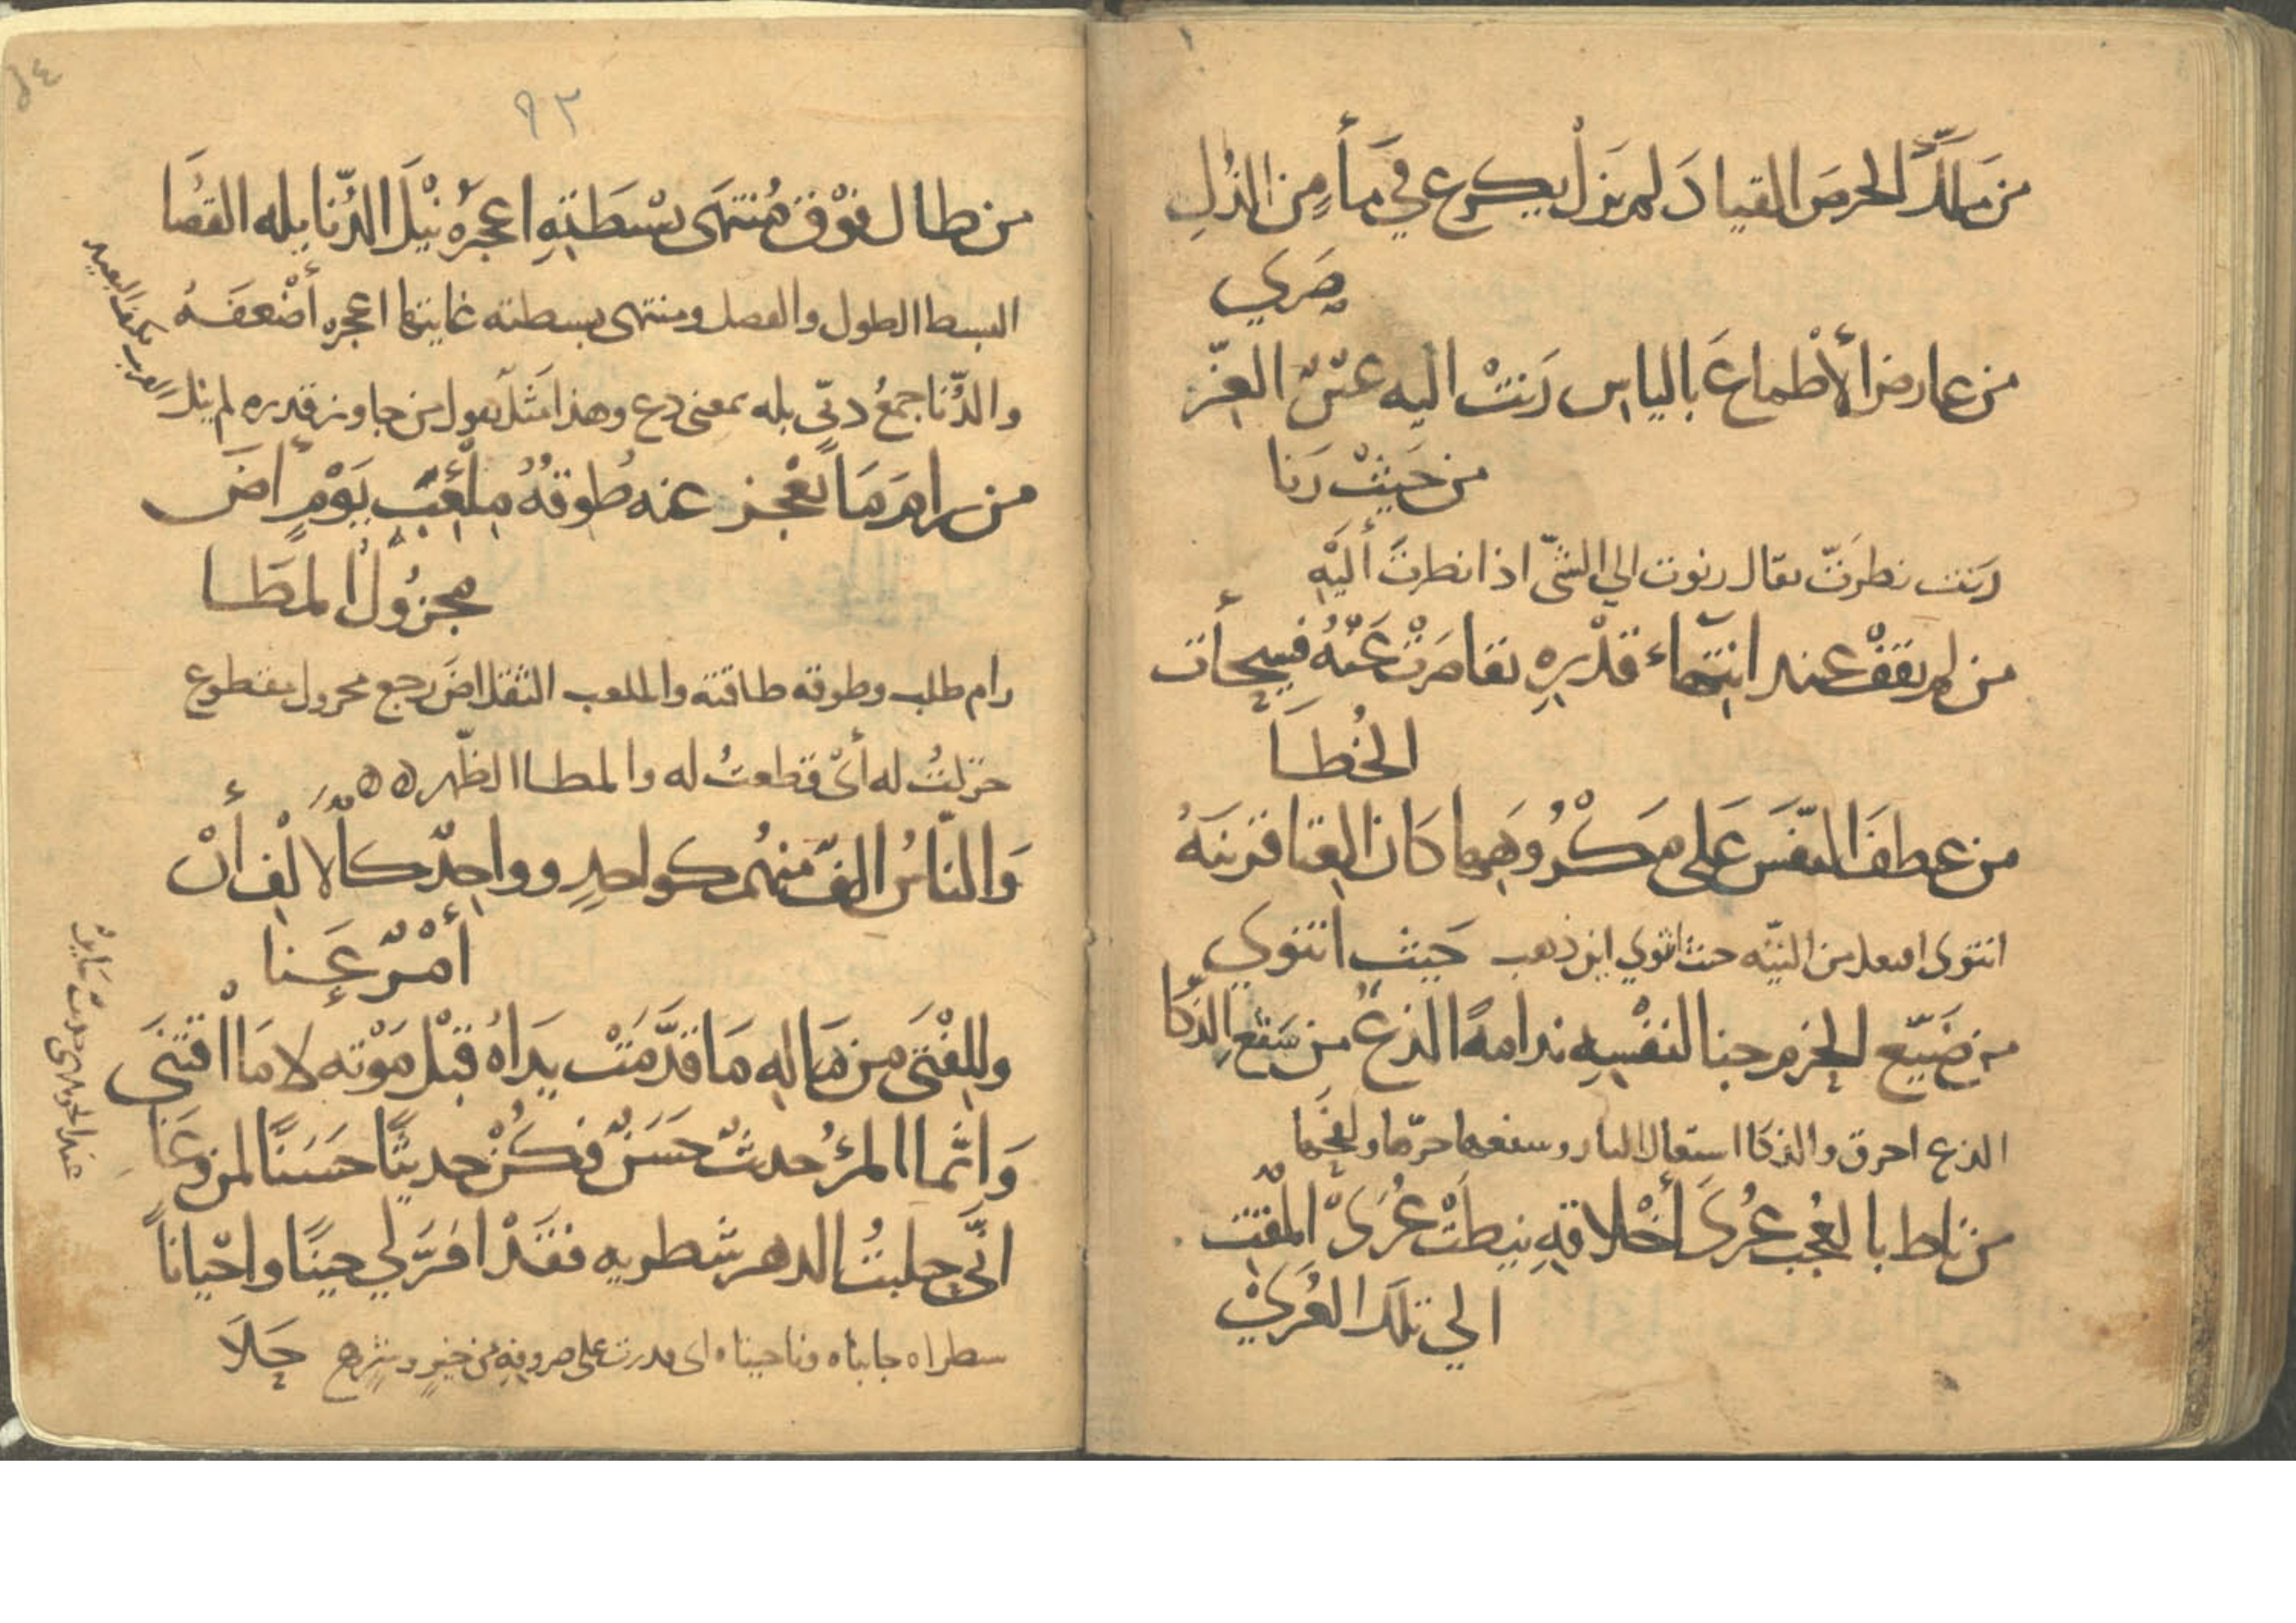 من ملّك الحرصَ القيادَ لم يزلْ يكرع في مأٍ من الذُلِ
صَري
من عارض الأطماعَ بالياس رَنتْ اليه عَيْنُ العِزّ
من حَيثْ رَنا
رَنت نظرَتّ يقال رنوت الي الشيّ اذا نظرتَ أليْهِ
من لم يقفْ عند انتِهاء قدْرِهِ تقاصَرتْ عَنْهُ فسيحأت
الخُطَا
من عطفَ النّفسَ عَلى مَكْرُوهِها كَان الغِنا قرينَهُ
انتوى افتعل من النيّه حيث انتوي اين ذهب حَيث انتوي
من ضَيّع الحزم جنا لنفْسِهِ ندامةً الذعُ من سَفعِ الذكا
الذع احرق والذكا اشتعال النار وسفعها حرّها ولفحَها
من ناط بالعُجب عُرىَ أخْلاقهِ نيطَتْ عُرَىّ المْقتِ
الي تلكَ العُرَيْ
٩٢
من طال فوْق مُنتهَى بسْطَتِهِ اعجزهُ نيْلَ الدُّنا بله القصَا
البسطا الطول والفضل ومنتهى بسطته غايتها اعجزه أضْعَفَهُ
والدُّنا جمعُ دنيّ بله بمعنى دع وهذا مَثلٌ يقول من جاوز قدره لم ينل
القريب فكيف البعيد
من رامَ مَا يَعْجز عنه طُوقهُ مِلْعِبْ يَوْمٍ أضَ
مجزُولُ المطَا
رام طلب وطوقه طاقته والملعب الثقل اضَ رجع مجزول مقطوع
جزلتُ له أىْ قطعتُ له والمطا الظّهر ه ه
وَالنّاسُ الفٌ منهُم كواحِدٍ وواحِدٌ كالألْفِ أنْ
أمْرٌ عَنا
وللفْتَى من مَالِهِ مَا قدَّمَتْ يَدَاهُ قَبْل مَوْته لا مَا اقْتنَى
وَانّما المرُؤ حديثٌ حسَنٌ فكُنْ حديثًا حسَنًا لمن وَعَا
عند الجوهرى حديث سَاير
انّي حلبتُ الدهر شطريه فقَدْ امَرَّ لي حينًا واحْيانًا
شطراه جانباه وناحيتاه اى قدرت على صروفهِ من خيرٍ وشرٍ حَلَا